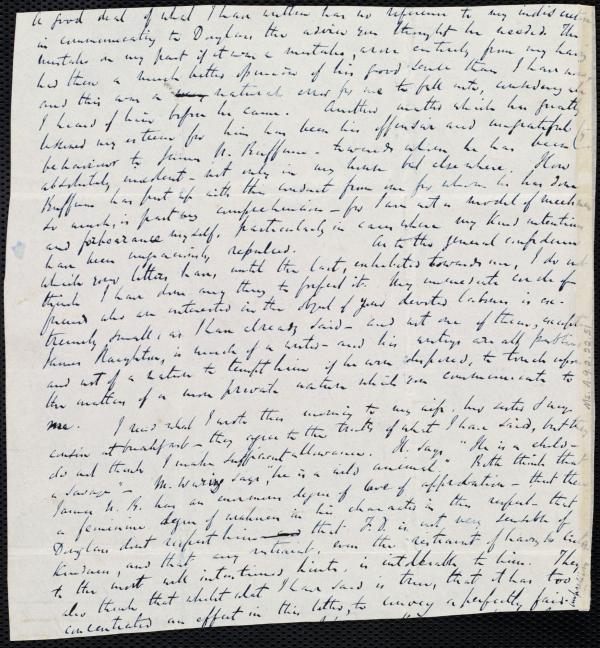 A good deal of what I have written has no reference to my indiscretion
in communicating to Douglass the advice you thought he needed. The
mistake on my part if it was a mistake, arose entirely from my having
had then a much better opinion of his good sense than I have now
and this was a natural error for me to fall into, considering all
I heard of him before he came. Another matter which has greatly
lessened my esteem for him has been his offensive and ungrateful
behaviour to James N. Buffum - towards whom he has been
absolutely insolent - not only in my house but elsewhere. How
Buffum has put up with the conduct from one for whom he has done
so much, is past my comprehension - for I am not a model of meekness
and forbearance myself, particularly in cases where my kind intentions
have been ungraciously repulsed. As to the general confidence
which your letters have, until the last, exhibited towards me, I do not
think I have done any thing to forfeit it. My immediate circle of
friends who are interested in the object of your devoted labours is ex-
tremely small, as I have already said - and not one of them, except
James Haughton, is much of a writer - and his writings are all public
and not of a nature to tempt him if he were disposed, to touch upon
the matters of a more private nature which you communicate to
me. I read what I wrote this morning to my wife, her sister & my
cousin at breakfast - they agree to the truth of what I have said, but
do not think I make sufficient allowance. H. says "He is a child -
a savage" - M. Waring says "he is a wild animal." Both think that
James N. B. has an immense degree of love of approbation - that there
a feminine degree of weakness in his character in this respect - that
Douglass dont respect him - that F.D. is not very sensible of
kindness, and that any restraint, even the restraint of having to
to the most well intentioned hints, is intolerable to him. They
also think that whilst what I have said is true, that it has too
concentrated an effect in this letter, to convey a perfectly fair
Ms. A.9.2.22.51